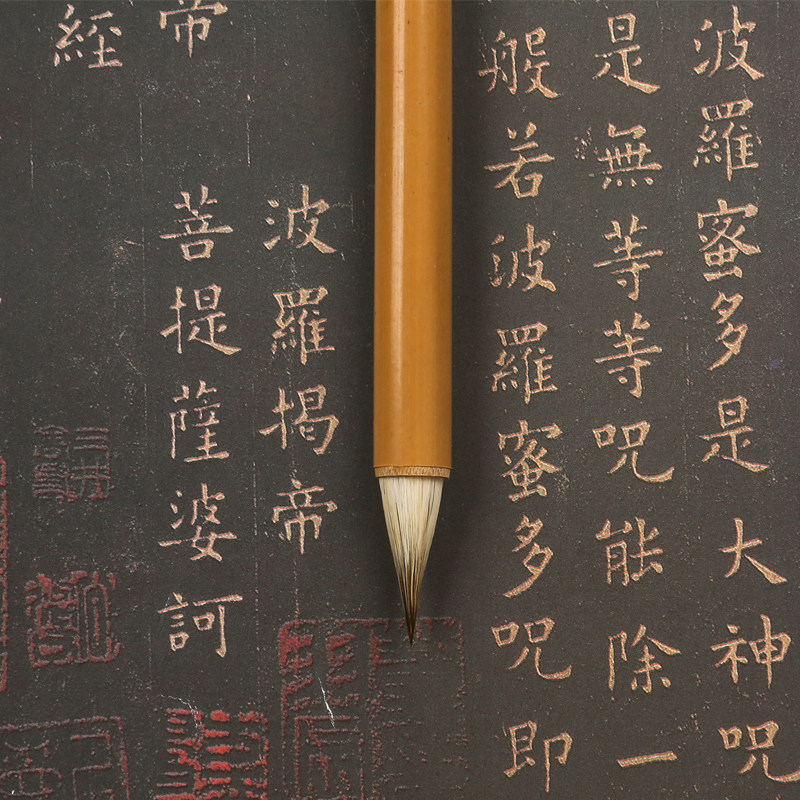 波羅蜜多是大神咒
是無等等咒能除一
般若波羅蜜多咒即
波羅揭帝
帝
菩提薩婆訶
經